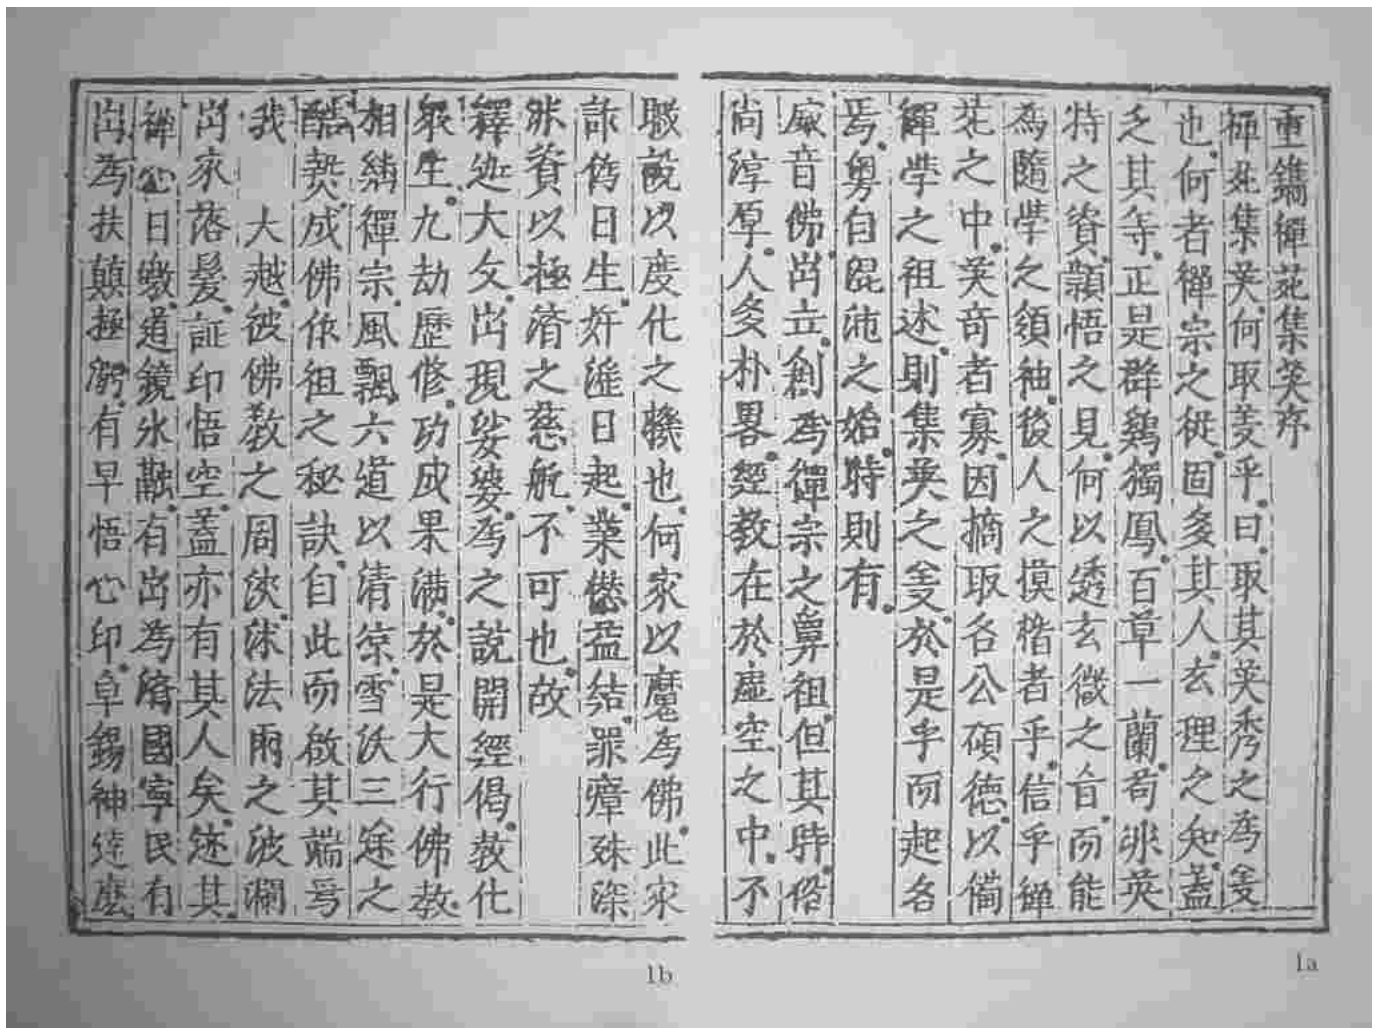 重鐫禪苑集英序
禪苑集英何取義乎曰取其英秀之為
也何者禪宗之從固多其人玄理之知蓋
乏其等正是群鷄獨鳳百草一蘭苟非英
特之資穎悟之見何以透玄微之旨而能
為隨學之領袖後人之摸楷者乎信乎禪
苑之中英奇者寡因摘取各公碩德以備
禪學之祖述則集英之於是乎而起名
焉粵自混沌之始時則有
威音佛出立創為禪宗之鼻祖但其時俗
尚淳厚人多朴畧經教在於虛空之中不
職說以度化之機也何家以魔為佛此家
詐偽日生奸滛日起業愆益結罪障殊深
非資以極濟之慈航不可也故
釋迦大父出現娑婆為之說開經偈教化
眾生九劫歷修功成果滿於是大行佛教
相綉禪宗風飄六道以清凉雪沃三途之
酷熱成佛依祖之秘訣自此而啟其端焉
我 大越彼佛教之周浹沐法雨之波瀾
出家落髮証印悟空蓋亦有其人矣迹其
禪心日皦道鏡氷融有出為濟國寧民有
出為扶顛極溺有早悟心印卓錫神達麽
1b
1a